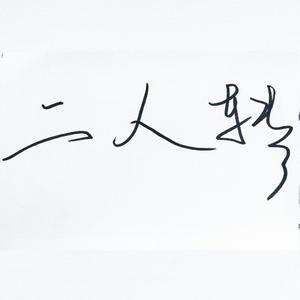 二人转